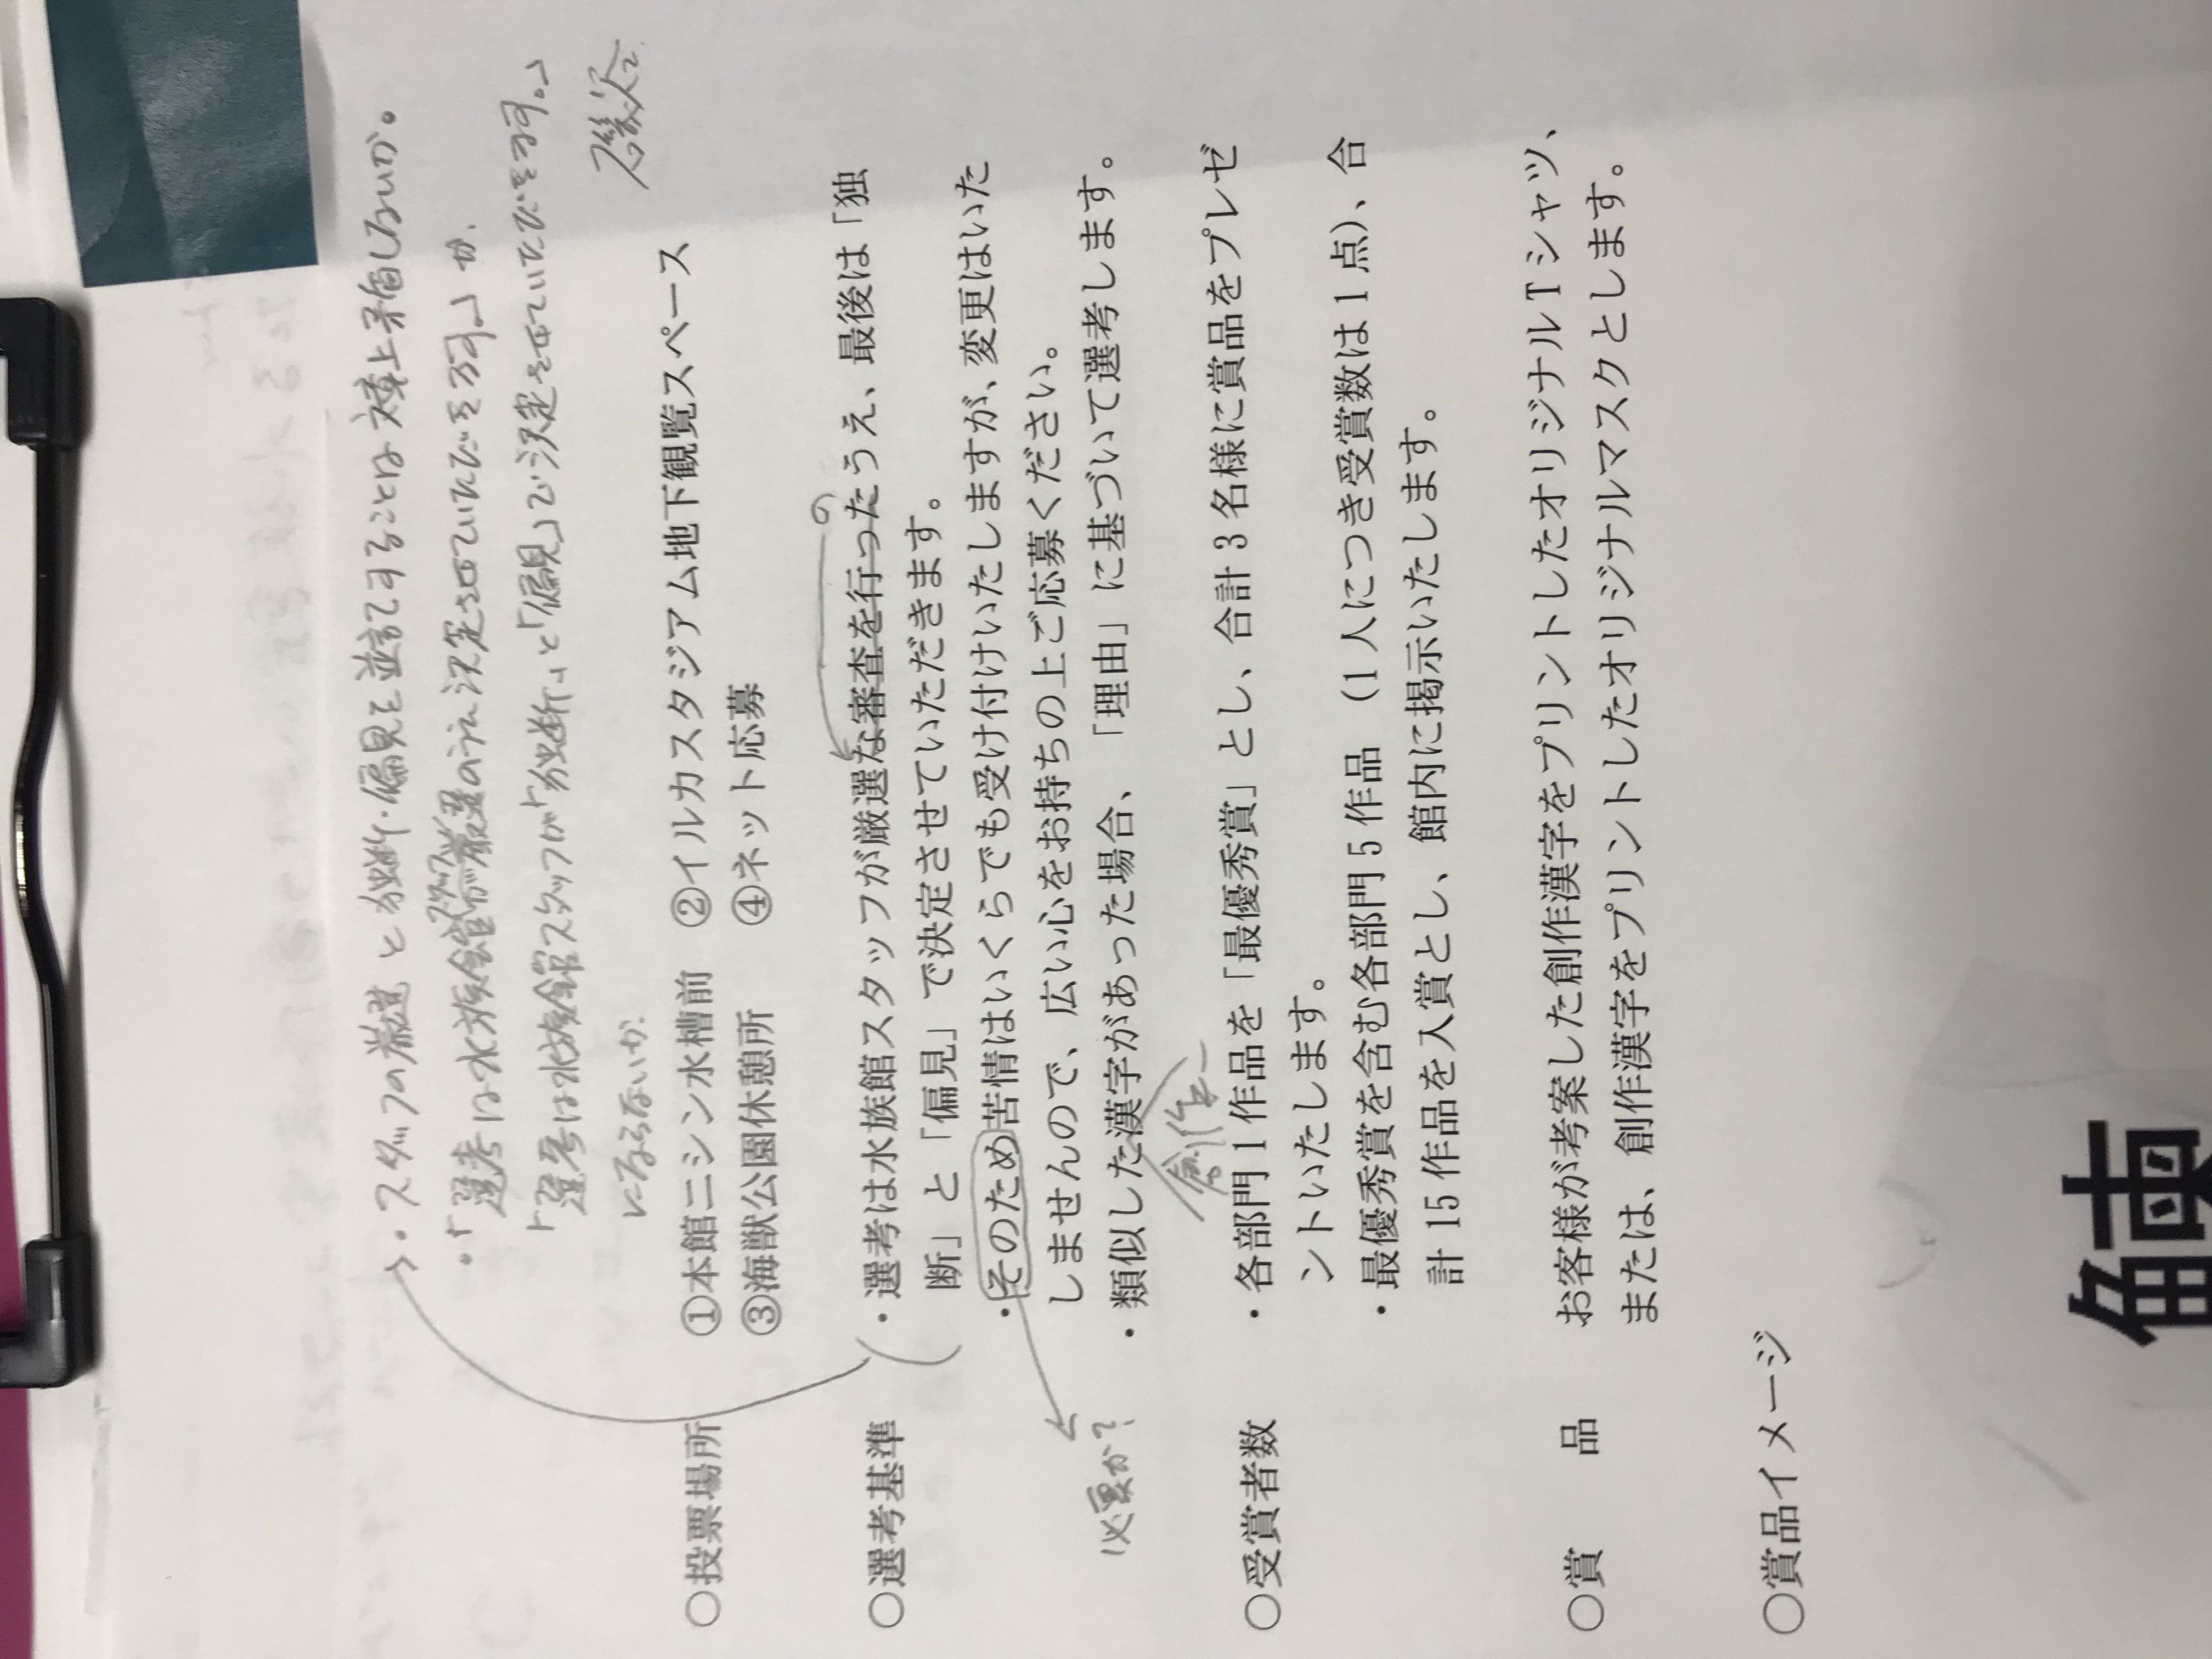 ・スタッフの厳選と独断・偏見を並立てすることは文章上矛盾しないか。
・「選考は水族館スタッフが厳選のうえ決定させていただきます。」か、
「選考は水族館スタッフが「独断」と「偏見」で決定させていただきます。」
にならないか。
磯次
○投票場所 ①本館ニシン水槽前 ②イルカスタジアム地下観覧スペース
③海獣公園休憩所 ④ネット応募
の
○選考基準 ・選考は水族館スタッフが厳選な審査を行ったうえ、最後は「独
断」と「偏見」で決定させていただきます。
・そのため苦情はいくらでも受け付けいたしますが、変更はいた
しませんので、広い心をお持ちの上ご応募ください。
必要か?
・類似した漢字があった場合、「理由」に基づいて選考します。
創作
○受賞者数 ・各部門1作品を「最優秀賞」とし、合計3名様に賞品をプレゼ
ントいたします。
・最優秀賞を含む各部門5作品(1人につき受賞数は1点)、合
計15作品を入賞とし、館内に掲示いたします。
○賞 品 お客様が考案した創作漢字をプリントしたオリジナルTシャツ、
または、創作漢字をプリントしたオリジナルマスクとします。
○賞品イメージ